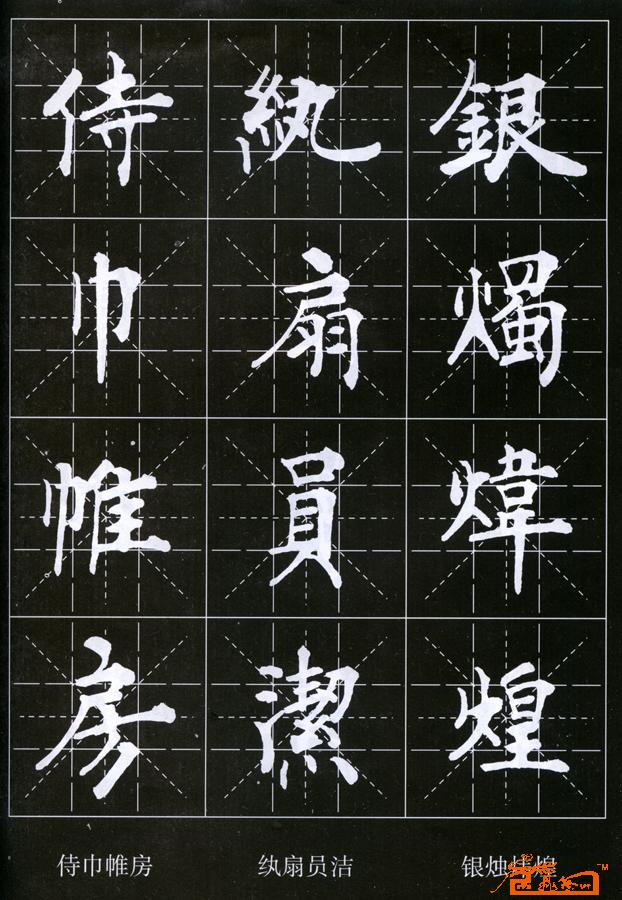 侍巾帷房
紈扇員潔
銀燭煒煌
侍巾帷房 纨扇员洁 银烛炜煌
TM